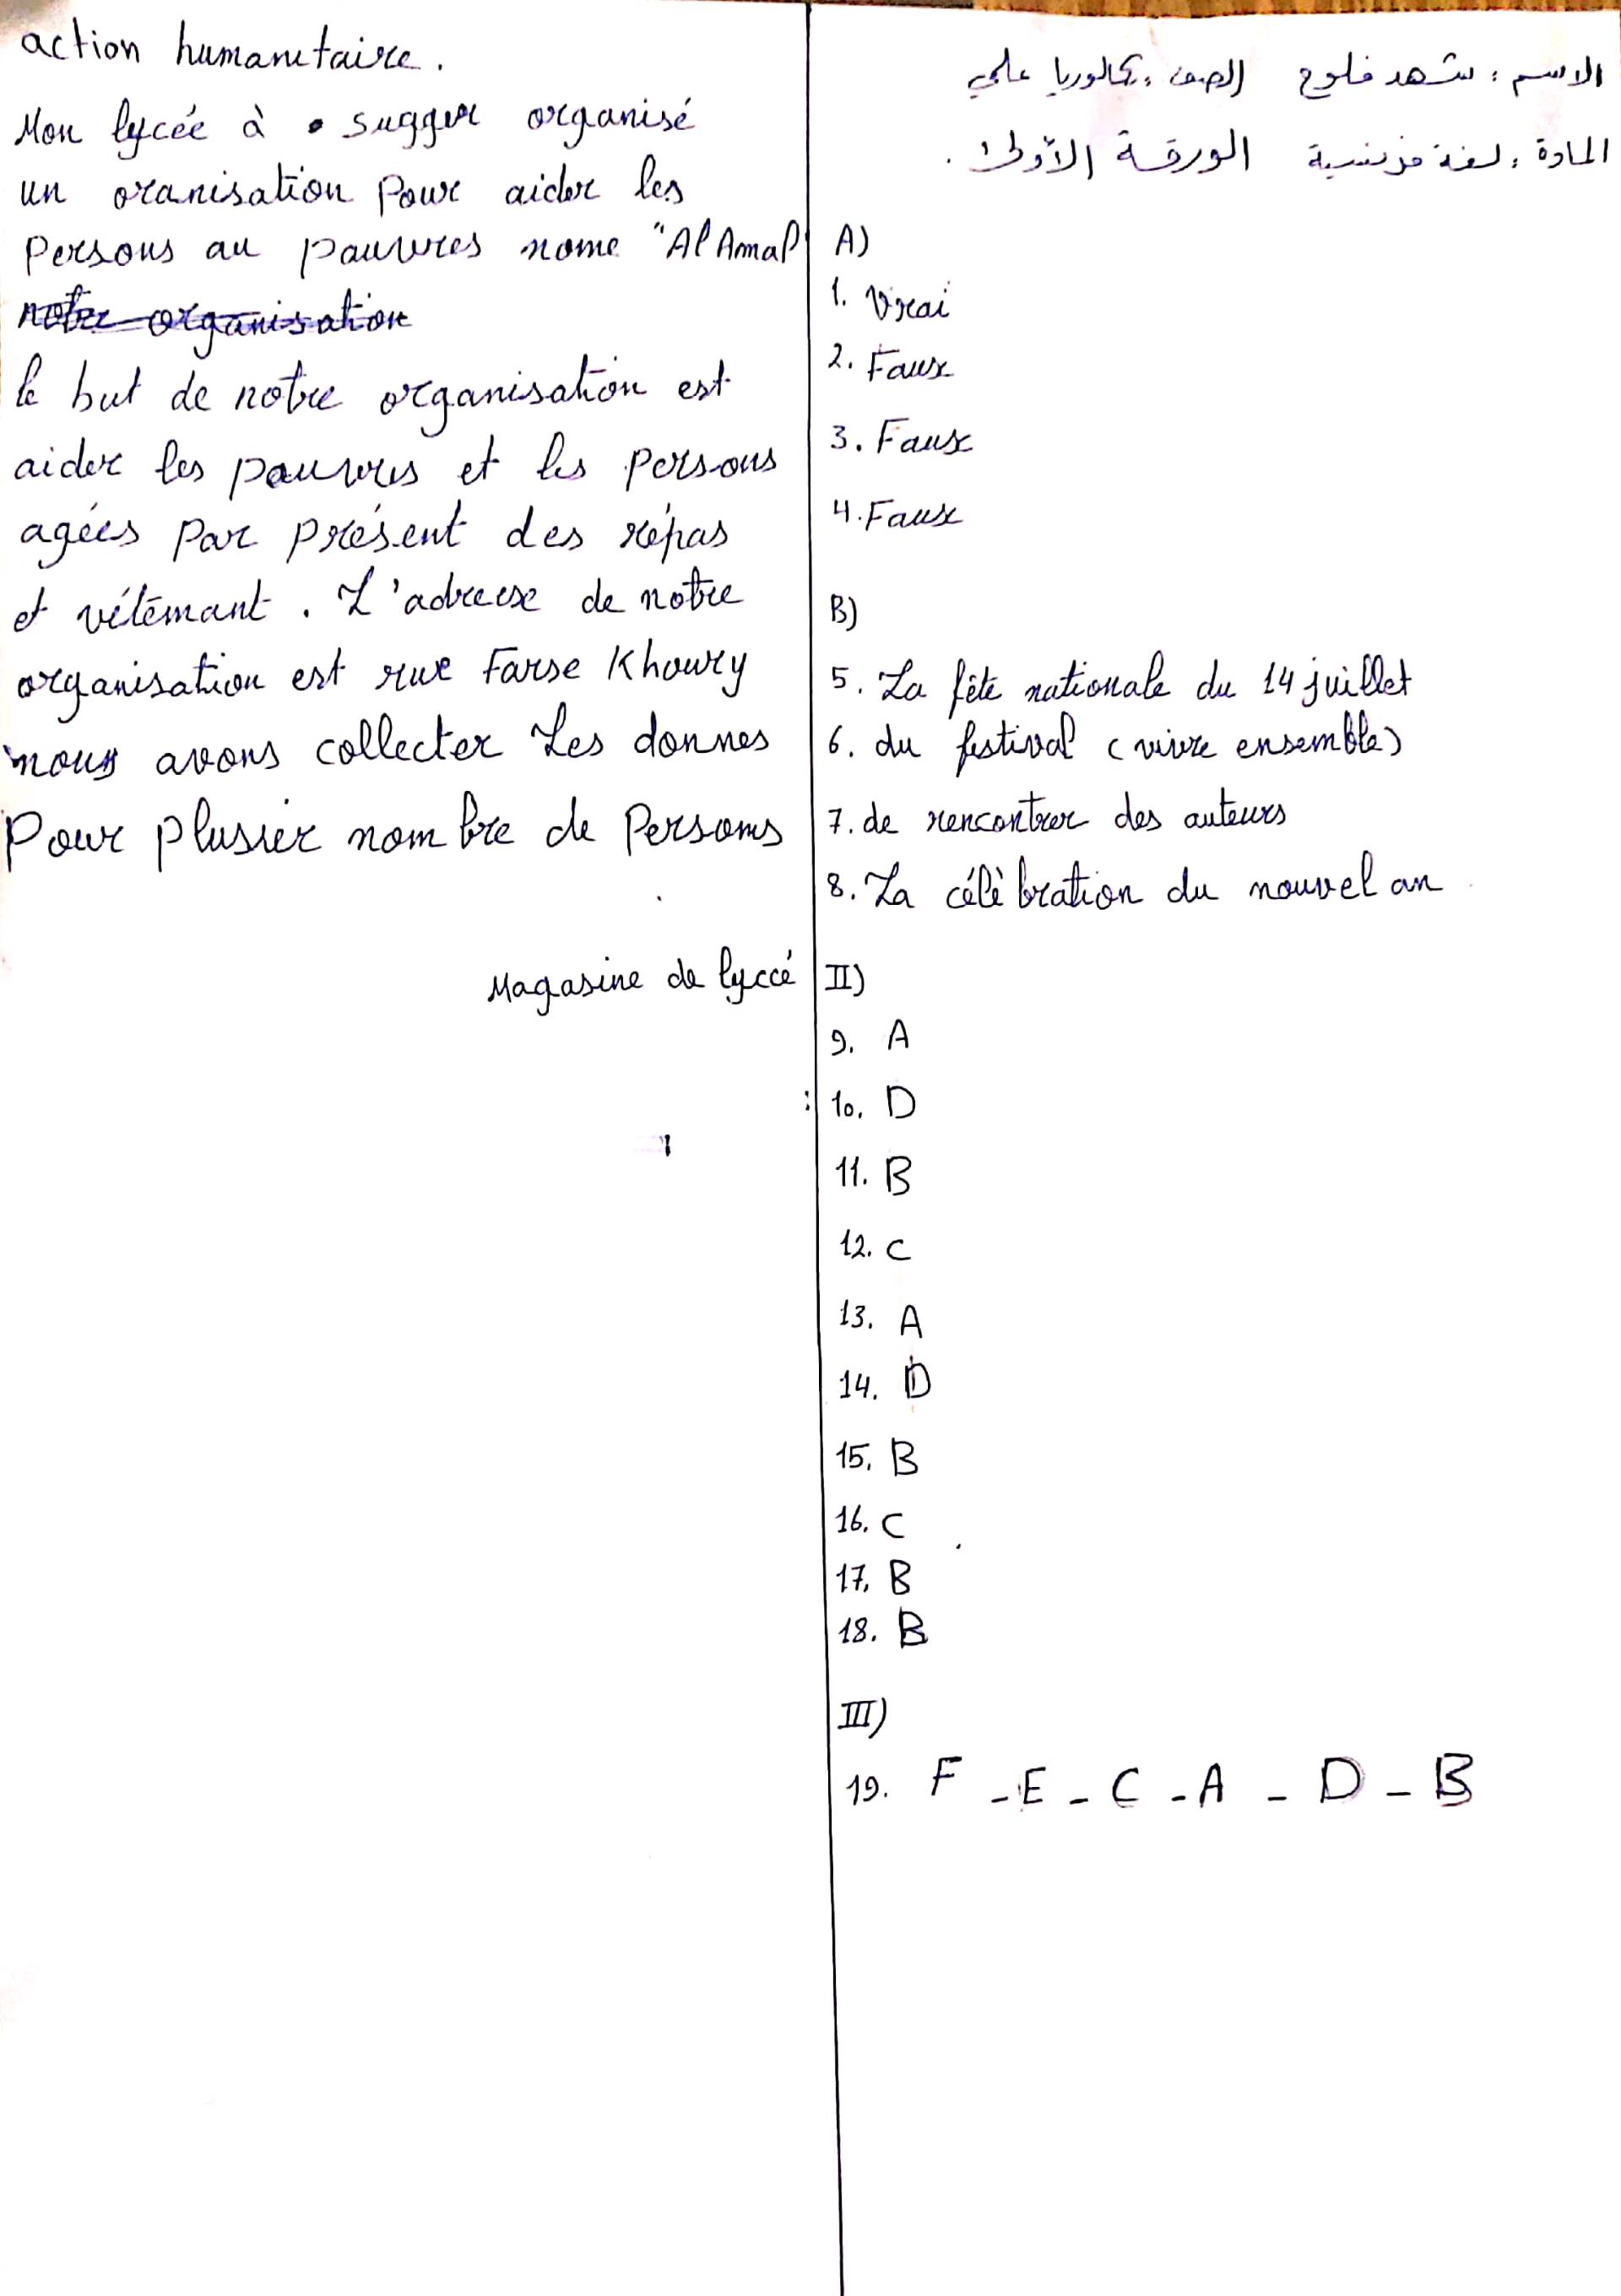 الاسم : شهد فلوح الصف : بكالوريا علمي
المادة : لغة فرنسية الورقة الأولى .
A)
1. Vrai
2. Faux
3. Faux
4. Faux
B)
5. La fête nationale du 14 juillet
6. du festival (vivre ensemble)
7. de rencontrer des auteurs
8. La célèbration du nouvel an
II)
9. A
10. D
11. B
12. C
13. A
14. D
15. B
16. C
17. B
18. B
III)
19. F - E - C - A - D - B
action humanitaire.
Mon lycée à suggur organisé
un oranisation Pour aider les
Persons au pauvres nome "Al Amal
notre organisation
le but de notre organisation est
aider les pauvres et les persons
agées par présent des répas
et vétêmant. L'adresse de notre
organisation est rue Farse Khoury
nous avons collecter Les donnes
Pour plusier nombre de Persons
Magasine de lyccé